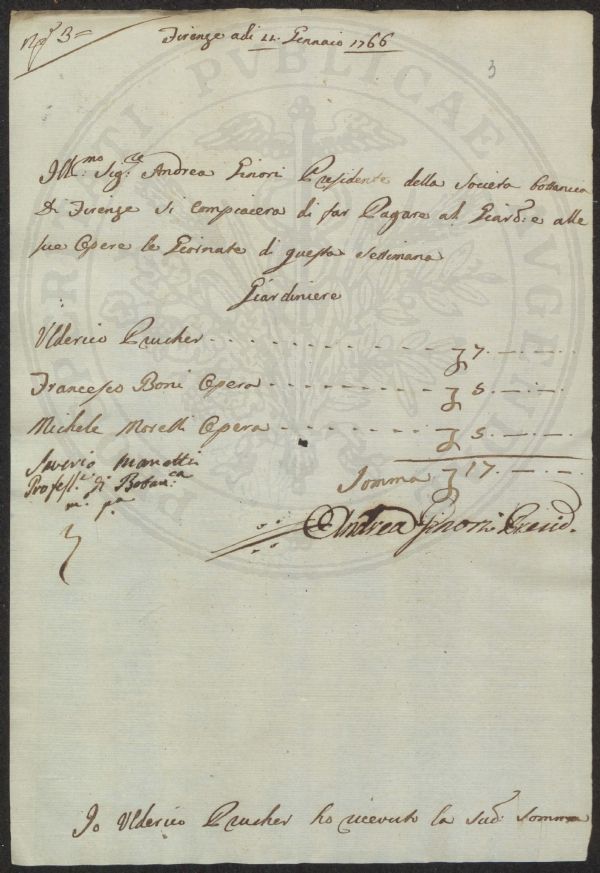 N.º 3=
Firenze adi 11. Gennaio 1766
3
Ill.mo Sig.re Andrea Ginori Presidente della Società botanica
Di Firenze Si Compiacerà di far Pagare al Giard.e e alle
sue Opere le Giornate di questa Settimana
Giardiniere
Ulderico Prucher - - - - - - - - - - 7. — —
Francesco Boni Opera - - - - - - - - 5. — —
Michele Moretti Opera - - - - - - - - 5. — —
Saverio Manetti
Profess.e di Botan.ca
m. p.a
Somma 17 — —
Andrea Ginori Presid.
Io Ulderico Prucher ho ricevuto la Sud.a Somma